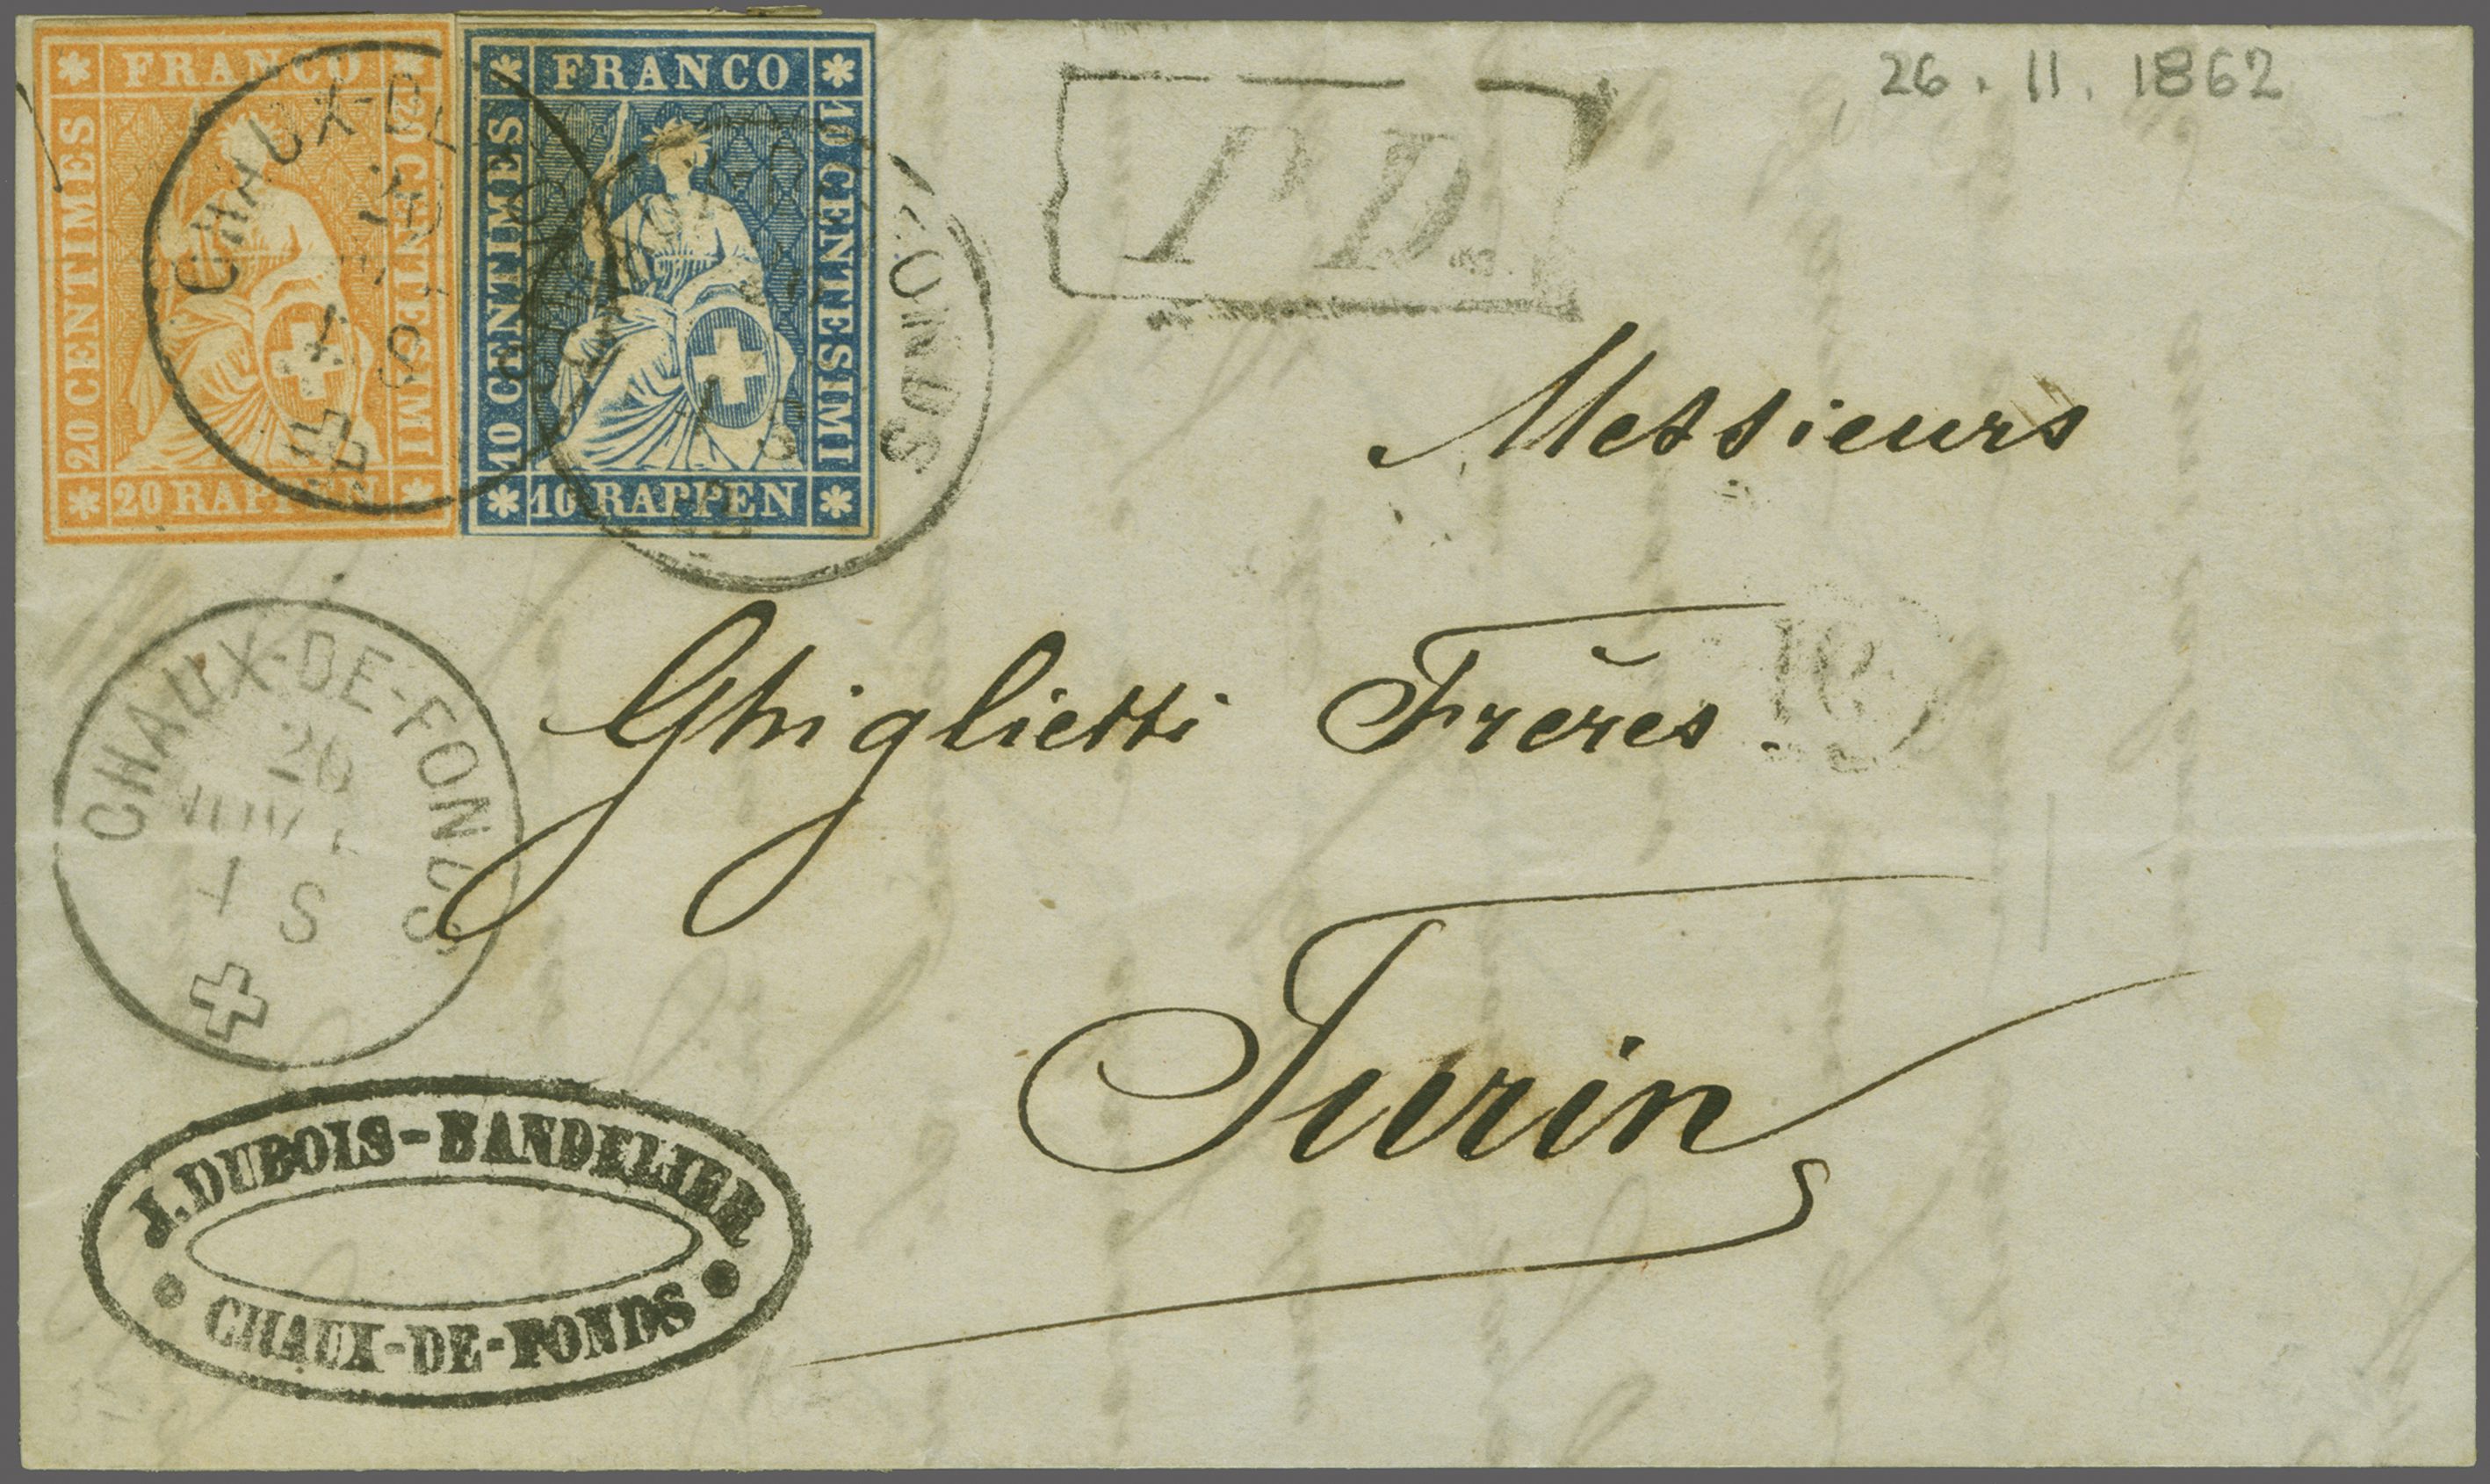 FRANCO
20 CENTIMES
20 CENTESIMI
20 RAPPEN
FRANCO
10 CENTIMES
10 CENTESIMI
10 RAPPEN
CHAUX-DE
FONDS
P.D.
26.11.1862
Messieurs
Ghiglietti Frères
Turin
CHAUX-DE-FONDS
26
NOV
1 S
J. DUBOIS-BANDELIER
CHAUX-DE-FONDS